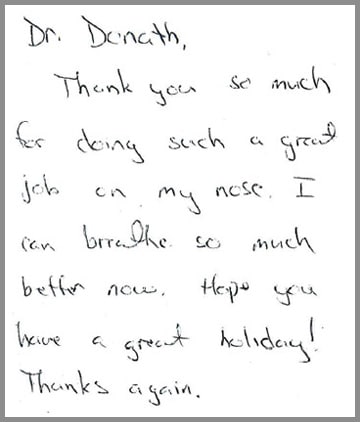 Dr. Donath,
Thank you so much
for doing such a great
job on my nose. I
can breathe so much
better now. Hope you
have a great holiday!
Thanks again.